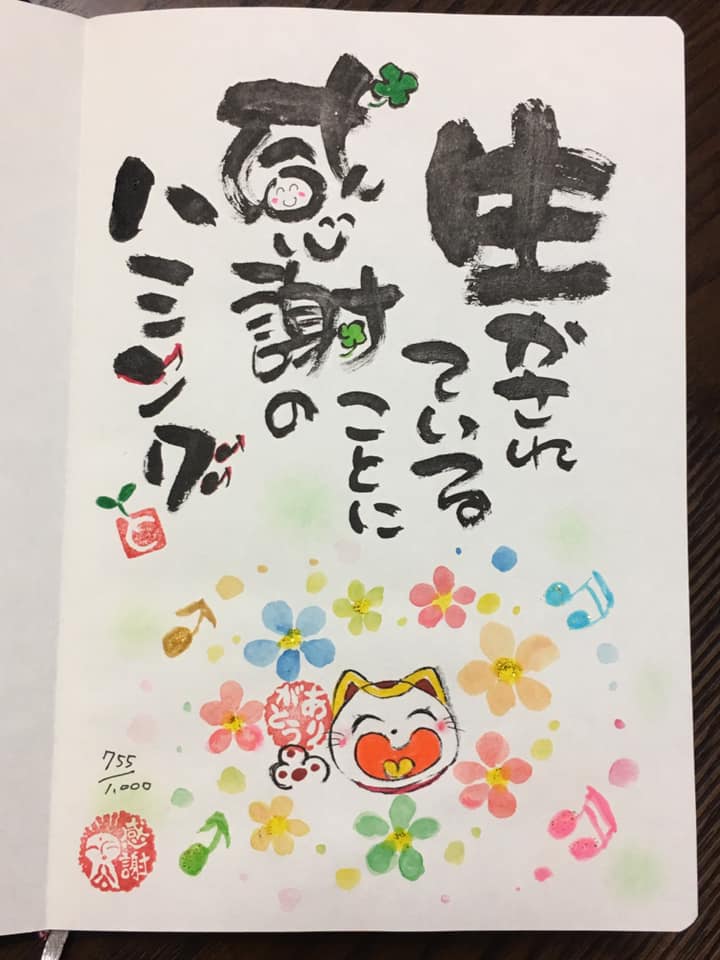 生かされ
ている
ことに
感謝の
ハミング
ありがとう
755/1,000
感謝